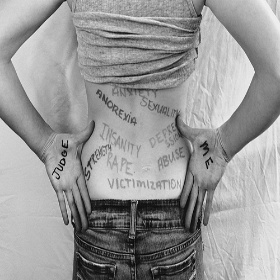 ANXIETY
ANOREXIA
SEXUALITY
INSANITY
STRENGTH
RAPE
ABUSE
VICTIMIZATION
JUDGE
ME